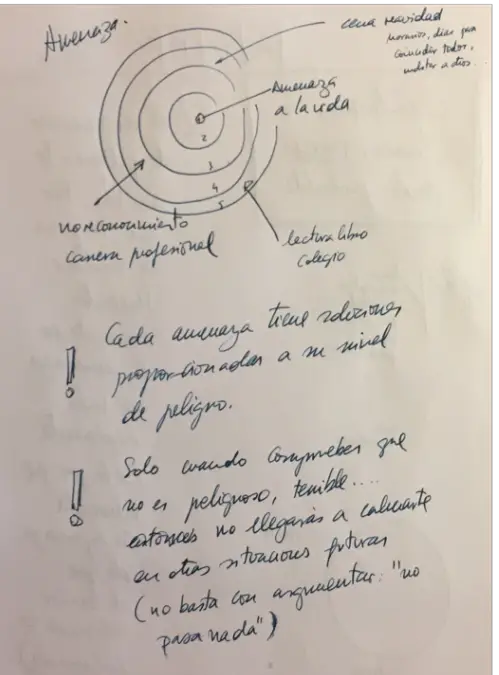 Amenaza.
cena navidad
horarios, días para
coincidir todos,
a dios.
Amenaza
a la vida
1
2
3
4
5
no reconocimiento
carrera profesional
lectura libro
colegio
! Cada amenaza tiene soluciones
proporcionadas a su nivel
de peligro.
! Solo cuando compruebes que
no es peligroso, temible....
entonces no llegarás a calmarte
en otras situaciones futuras
(no basta con argumentar: "no
pasa nada")